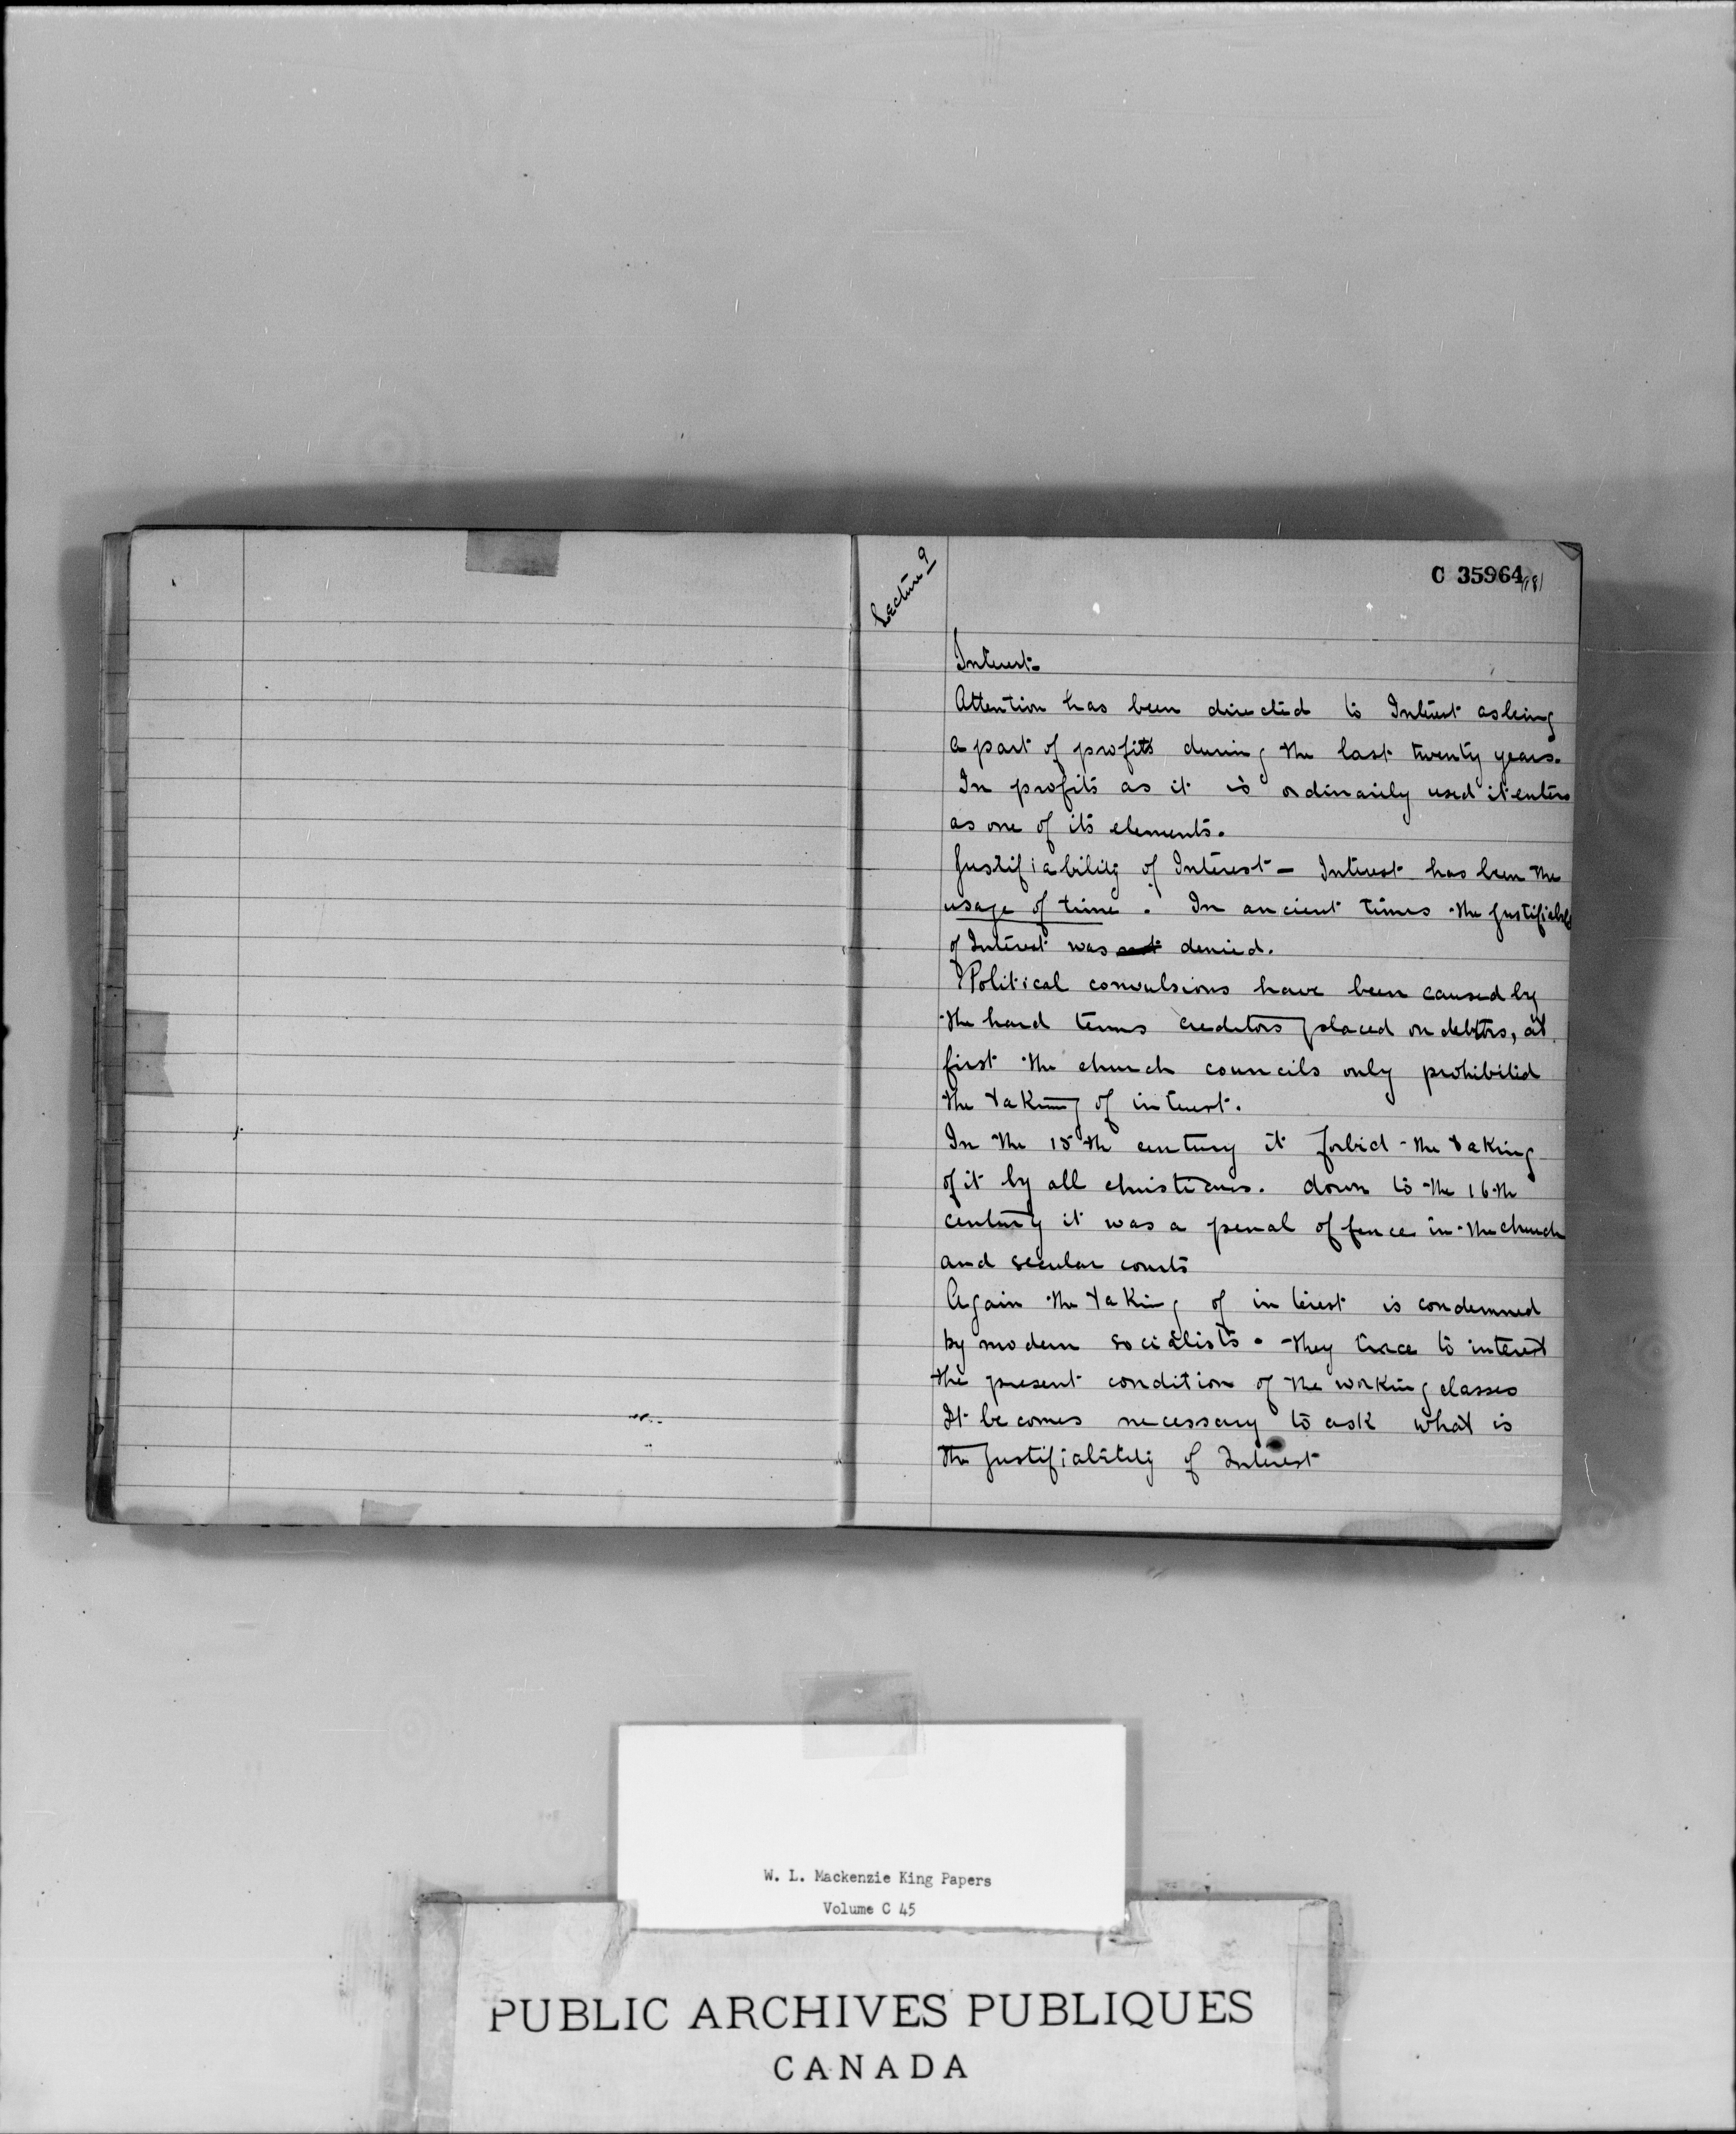 Lecture 9
C 35964
181
Interest.
Attention has been directed to Interest as being
a part of profits during the last twenty years.
In profits as it is ordinarily used it enters
as one of its elements.
Justifiability of Interest - Interest has been the
usage of time. In ancient times the justifiabl
of Interest was not denied.
Political convulsions have been caused by
the hard terms creditors placed on debtors, at
first the church councils only prohibited
the taking of interest.
In the 15th century it forbid the taking
of it by all christians. down to the 16th
century it was a penal offence in the church
and secular courts
Again the taking of interest is condemned
by modern socialists. They trace to interest
the present condition of the working classes
It becomes necessary to ask what is
the Justifiability of Interest
W. L. Mackenzie King Papers
Volume C 45
PUBLIC ARCHIVES PUBLIQUES
CANADA